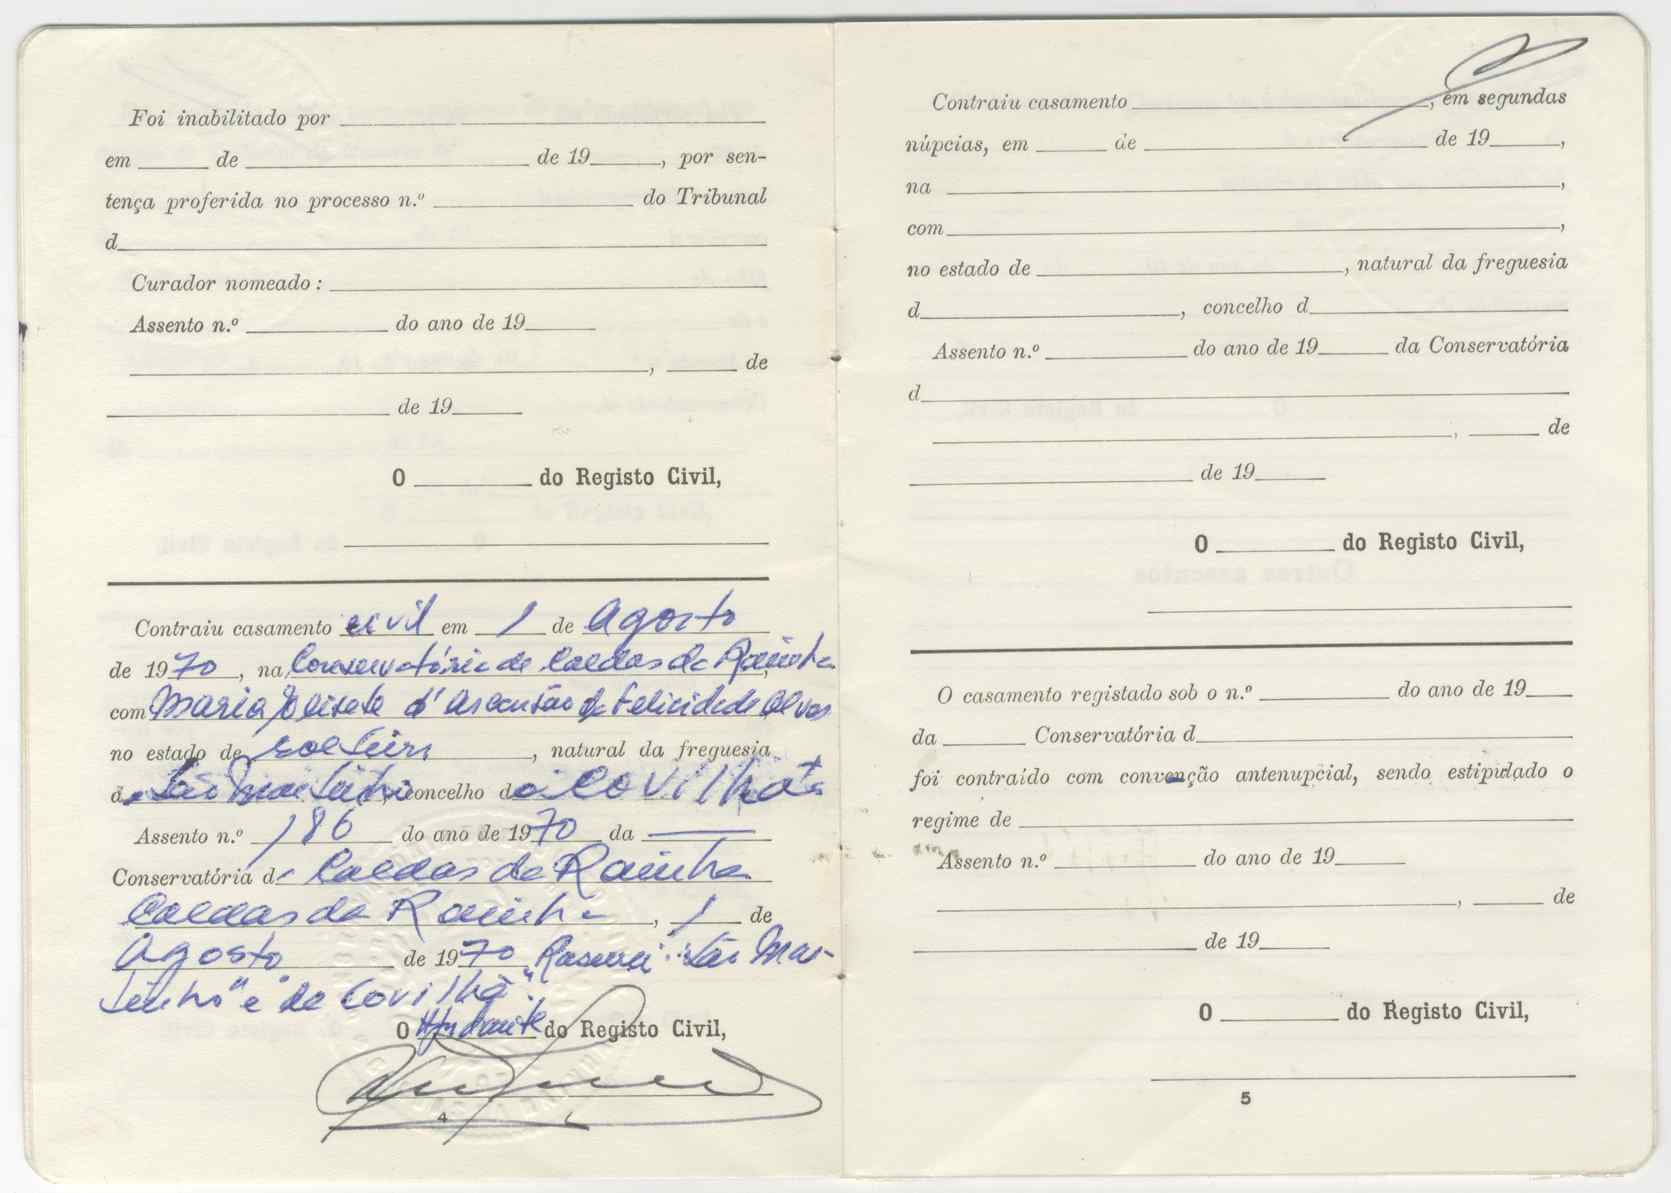 Foi inabilitado por
em de de 19 , por sen-
tença proferida no processo n.º do Tribunal
d
Curador nomeado :
Assento n.º do ano de 19
, de
de 19
O do Registo Civil,
Contraiu casamento civil em 1 de Agosto
de 1970, na Conservatória de Caldas da Rainha
com Maria d'Ascensão da Felicidade Alves
no estado de solteira, natural da freguesia
de São Martinho, concelho da Covilhã
Assento n.º 186 do ano de 1970 da
Conservatória de Caldas da Rainha
Caldas da Rainha, 1 de
Agosto de 1970 Rasurei: "São Mar-
tinho" e "da Covilhã".
O Ajudante do Registo Civil,
4
Contraiu casamento , em segundas
núpcias, em de de 19 ,
na ,
com ,
no estado de , natural da freguesia
d , concelho d
Assento n.º do ano de 19 da Conservatória
d
, de
de 19
O do Registo Civil,
O casamento registado sob o n.º do ano de 19
da Conservatória d
foi contraído com convenção antenupcial, sendo estipulado o
regime de
Assento n.º do ano de 19
, de
de 19
O do Registo Civil,
5